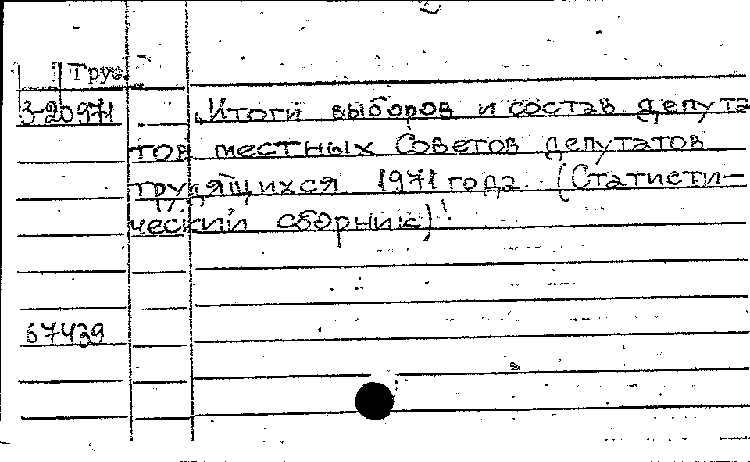 Груз.
3-20971 „Итоги выборов и состав депута
тов местных Советов депутатов
трудящихся 1971 года (Статисти-
ческий сборник)"
67439